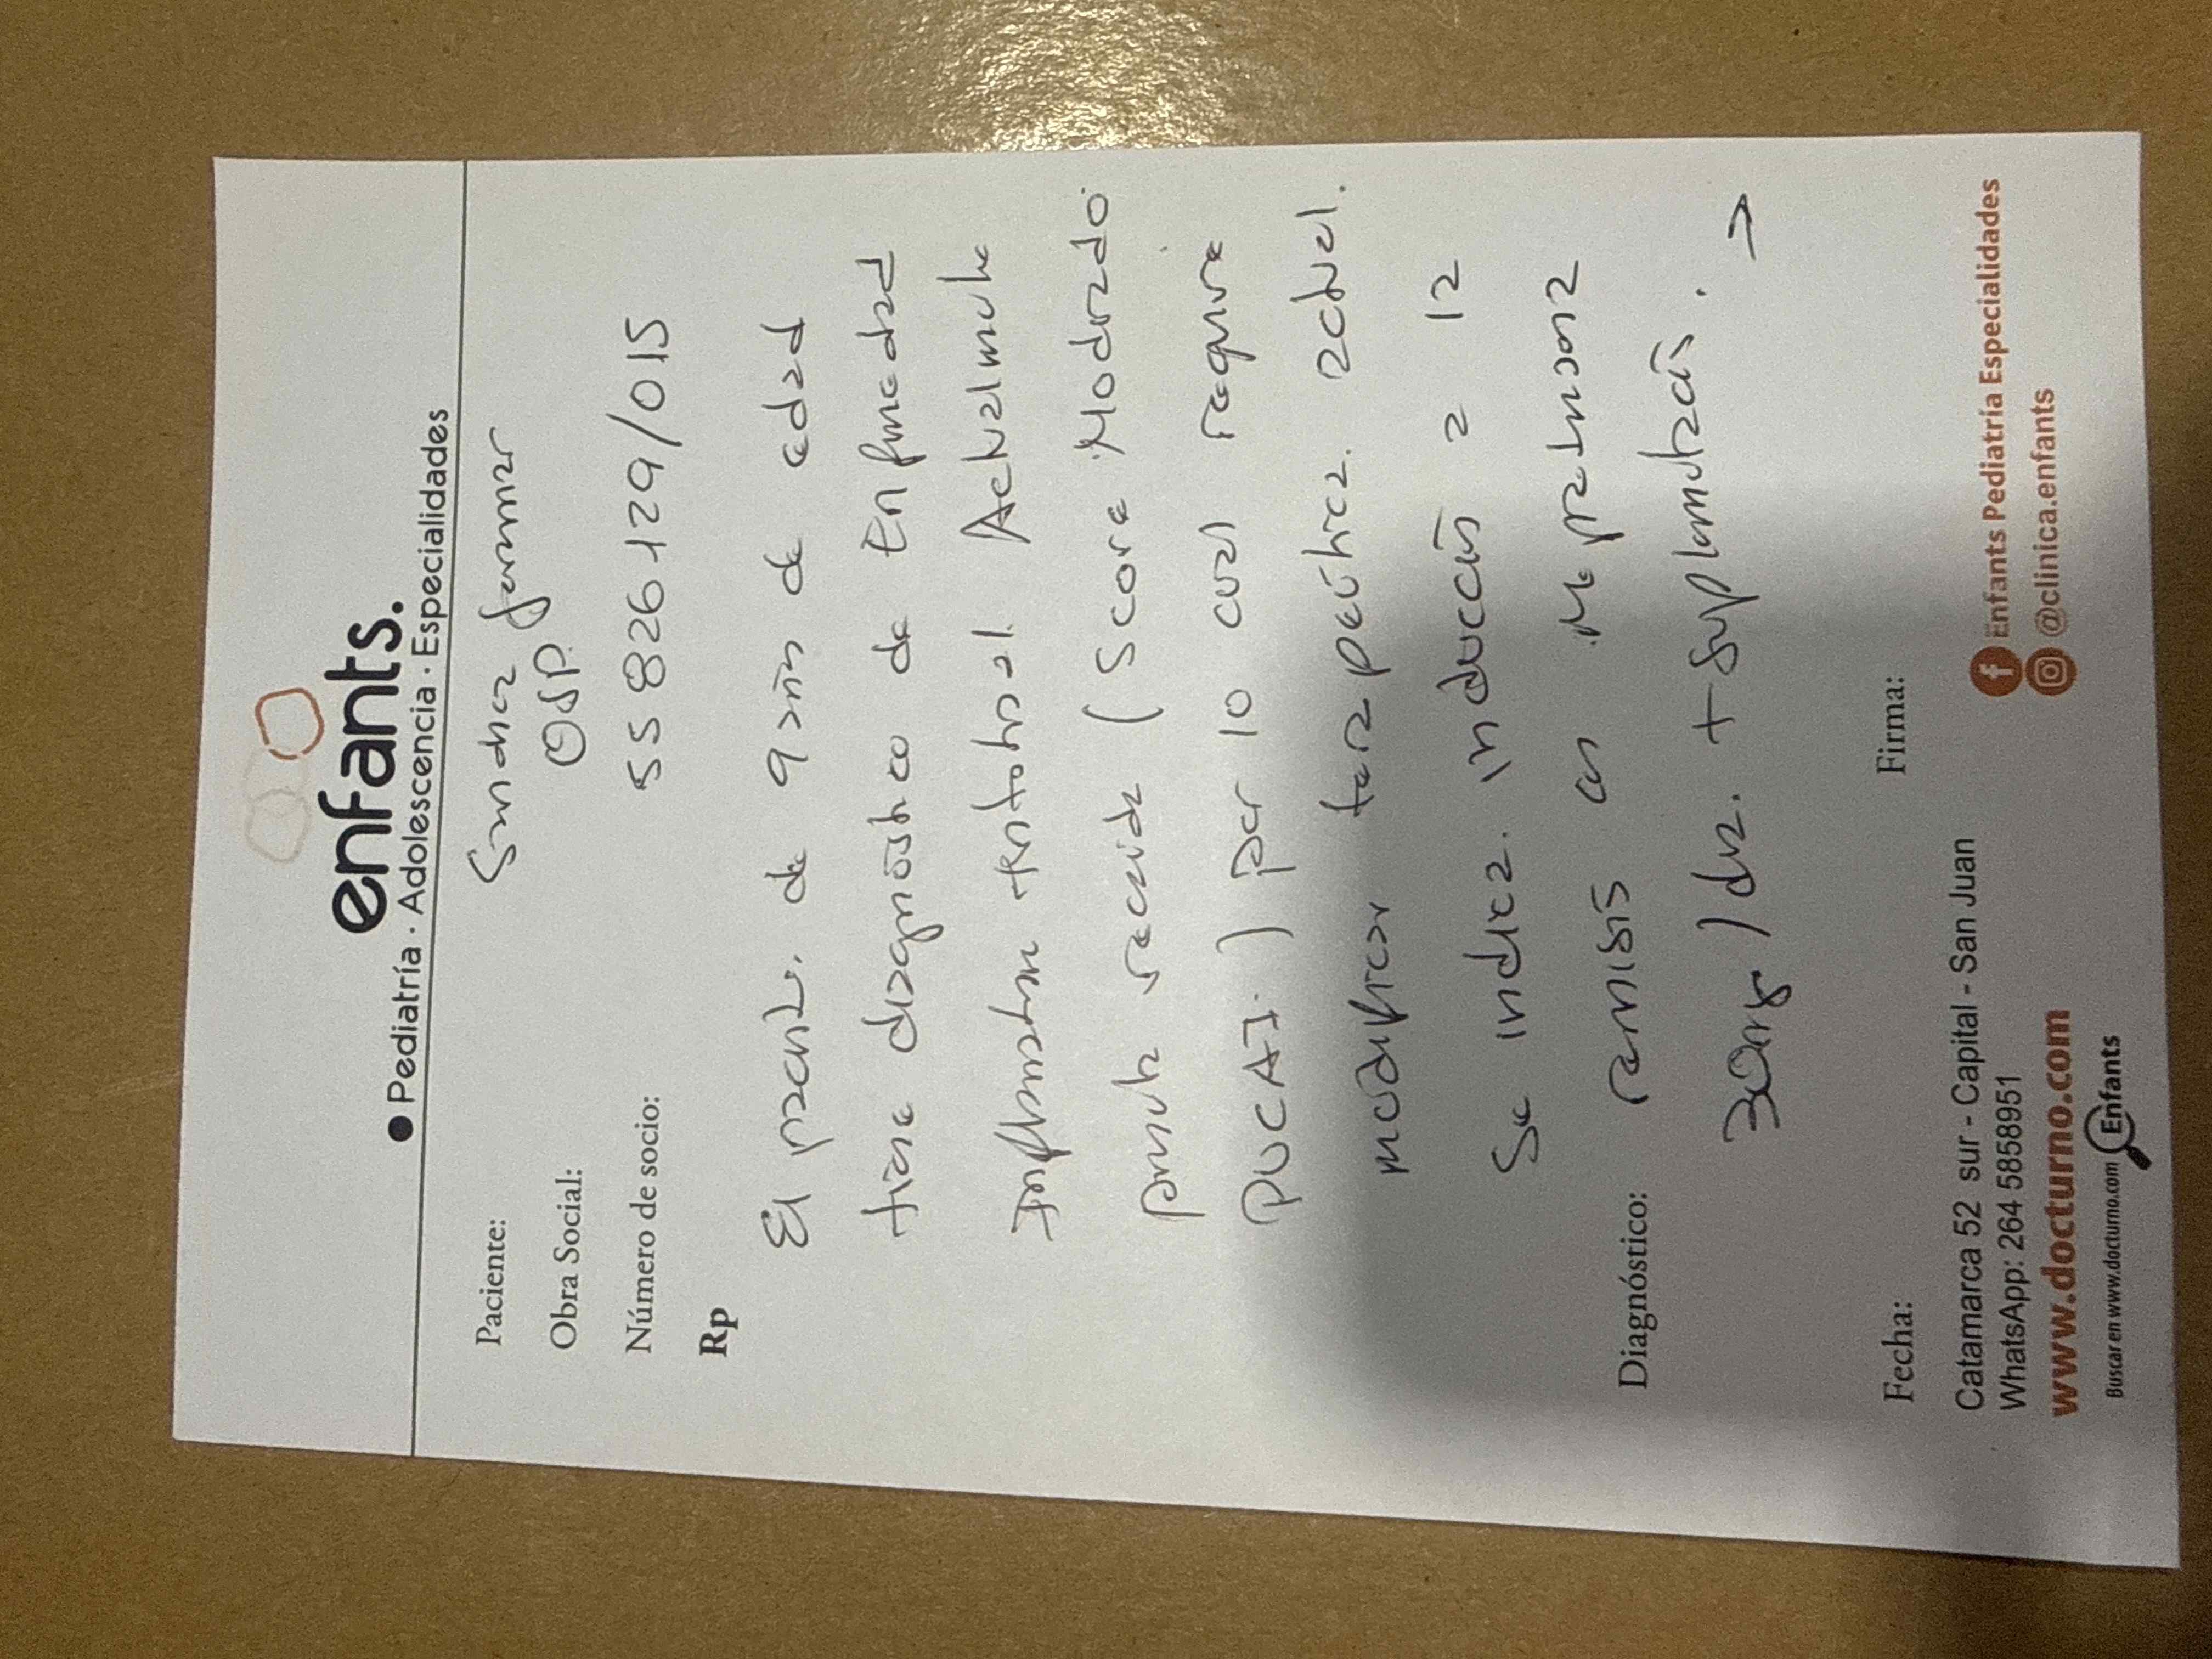 enfants.
Pediatría · Adolescencia · Especialidades
Paciente: Sanchez
Obra Social: OSP.
Número de socio: 55826129/015
Rp
El paciente de 9 años de edad
tiene diagnóstico de Enfermedad
Inflamatoria Intestinal. Actualmente
presenta recaída (Score Moderado
PUCAI.) por lo cual requiere
modificar terapéutica actual.
Se indica inducción a la
remisión con Meprednisona
30mg/día. + suplementación. →
Diagnóstico:
Fecha:
Firma:
Catamarca 52 sur - Capital - San Juan
WhatsApp: 264 5858951
www.docturno.com
Buscar en www.docturno.com Enfants
Enfants Pediatría Especialidades
@clinica.enfants